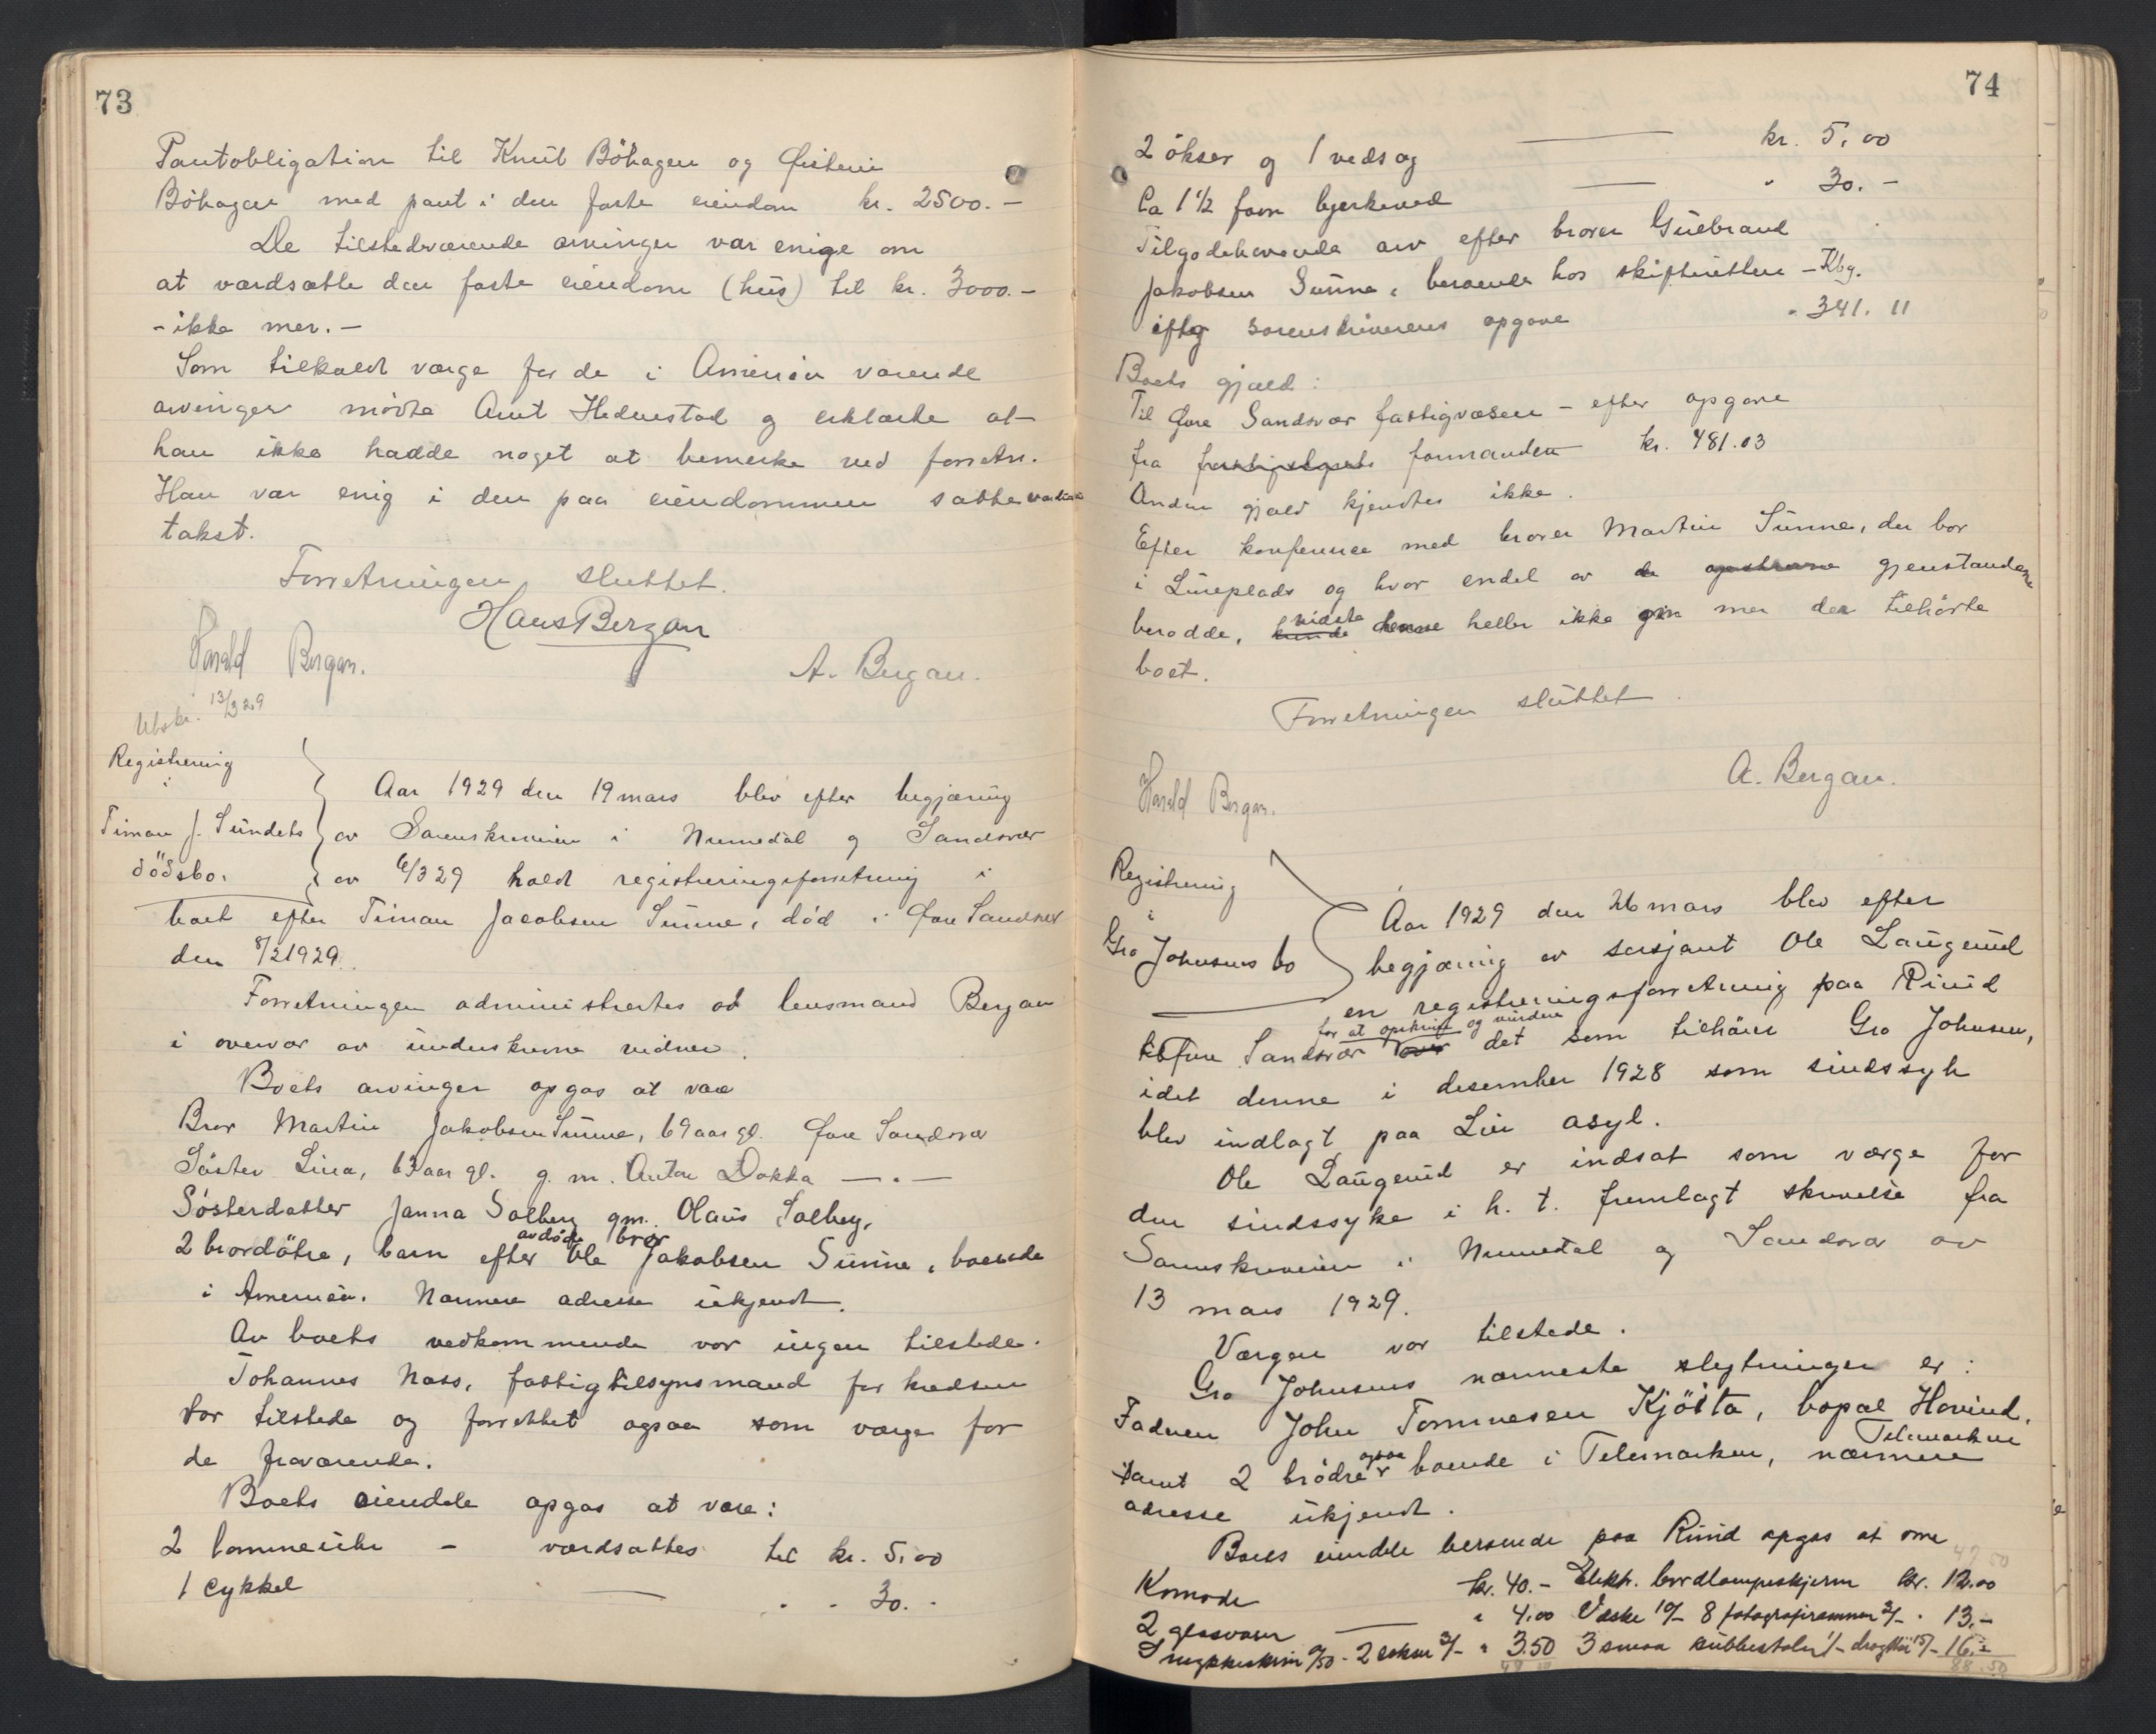 73
Pantobligation til Knut Böhagen og Øistein
Böhagen med pant i den faste eiendom kr. 2500.-
De tilstedeværende arvinger var enige om
at værdsætte den faste eiendom (hus) til kr. 3000.-
- ikke mer. -
Som tilkaldt værge for de i Amerika værende
arvinger mödte Amt Hedenstad og erklærte at
han ikke hadde noget at bemerke ved forretn.
Han var enig i den paa eiendommen satte
takst.
Forretningen sluttet.
Hans Bergan
Harald Bergan. A. Bergan.
Utskr. 13/3 29
Registrering
i
Timan J. Sundets
dödsbo.
Aar 1929 den 19 mars blev efter begjæring
av Sorenskriveren i Numedal og Sandsvær
av 6/3 29 holdt registreringsforretning i
boet efter Timan Jacobsen Sunne, död i Øvre Sandsvær
den 8/2 1929.
Forretningen administrertes av lensmand Bergan
i overvær av underskrevne vidner.
Boets arvinger opgas at være
Bror Martin Jakobsen Sunne, 69 aar gl. Øvre Sandsvær
Söster Lina, 63 aar gl. g.m. Anton Dokka — " —
Sösterdatter Janna Solberg gm. Olaus Solberg,
2 brordötre, barn efter avdöde bror Ole Jakobsen Sunne, boende
i Amerika. Nærmere adresse ukjendt.
Av boets vedkommende var ingen tilstede.
Johannes Moss, fattigtilsynsmand for kredsen
var tilstede og forrettet ogsaa som værge for
de fraværende.
Boets eiendele opgas at være:
2 lommeuhr - værdsættes til kr. 5,00
1 cykkel — " " 30.-
74
2 ökser og 1 vedsag — kr. 5,00
Ca 1 1/2 favn bjerkeved — " 30.-
Tilgodehavende arv efter broren Gulbrand
Jakobsen Sunne, beroende hos skifteretten - Kbg.
iflg sorenskriverens opgave " 341.11
Boets gjæld:
Til Øvre Sandsvær fattigvæsen - efter opgave
fra formanden kr. 481.03
Anden gjæld kjendtes ikke.
Efter konferense med broren Martin Sunne, der bor
i Luneplads og hvor endel av de opskrevne gjenstandene
berodde, vidste denne heller ikke om mer der tilhörte
boet.
Forretningen sluttet.
Harald Bergan. A. Bergan.
Registrering
i
Gro Johnsens bo
Aar 1929 den 26 mars blev efter
begjæring av sersjant Ole Laugerud
en registreringsforretning paa Rund
i Øvre Sandsvær for at opskrive og vurdere det som tilhörer Gro Johnsen,
idet denne i desember 1928 som sindssyk
blev indlagt paa Lier asyl.
Ole Laugerud er indsat som værge for
den sindssyke i h. t. fremlagt skrivelse fra
Sorenskriveren i Numedal og Sandsvær av
13 mars 1929.
Værgen var tilstede.
Gro Johnsens nærmeste slegtninger er:
Faderen John Tommesen Kjösta, bopæl Hovind, Telemarken
samt 2 brödre ogsaa boende i Telemarken, nærmere
adresse ukjendt.
Boets eiendele beroende paa Rund opgas at være
Komode kr. 40.- Elektr. bordlampeskjerm kr. 12.00
2 glasvaser — " 4,00 Væske 10/- 8 fotografirammer 3/- " 13,-
Smykkeskrin 0/50 - 2 esker 3/- " 3.50 3 smaa kubbestoler 1/- 15/- 16.-
88.50